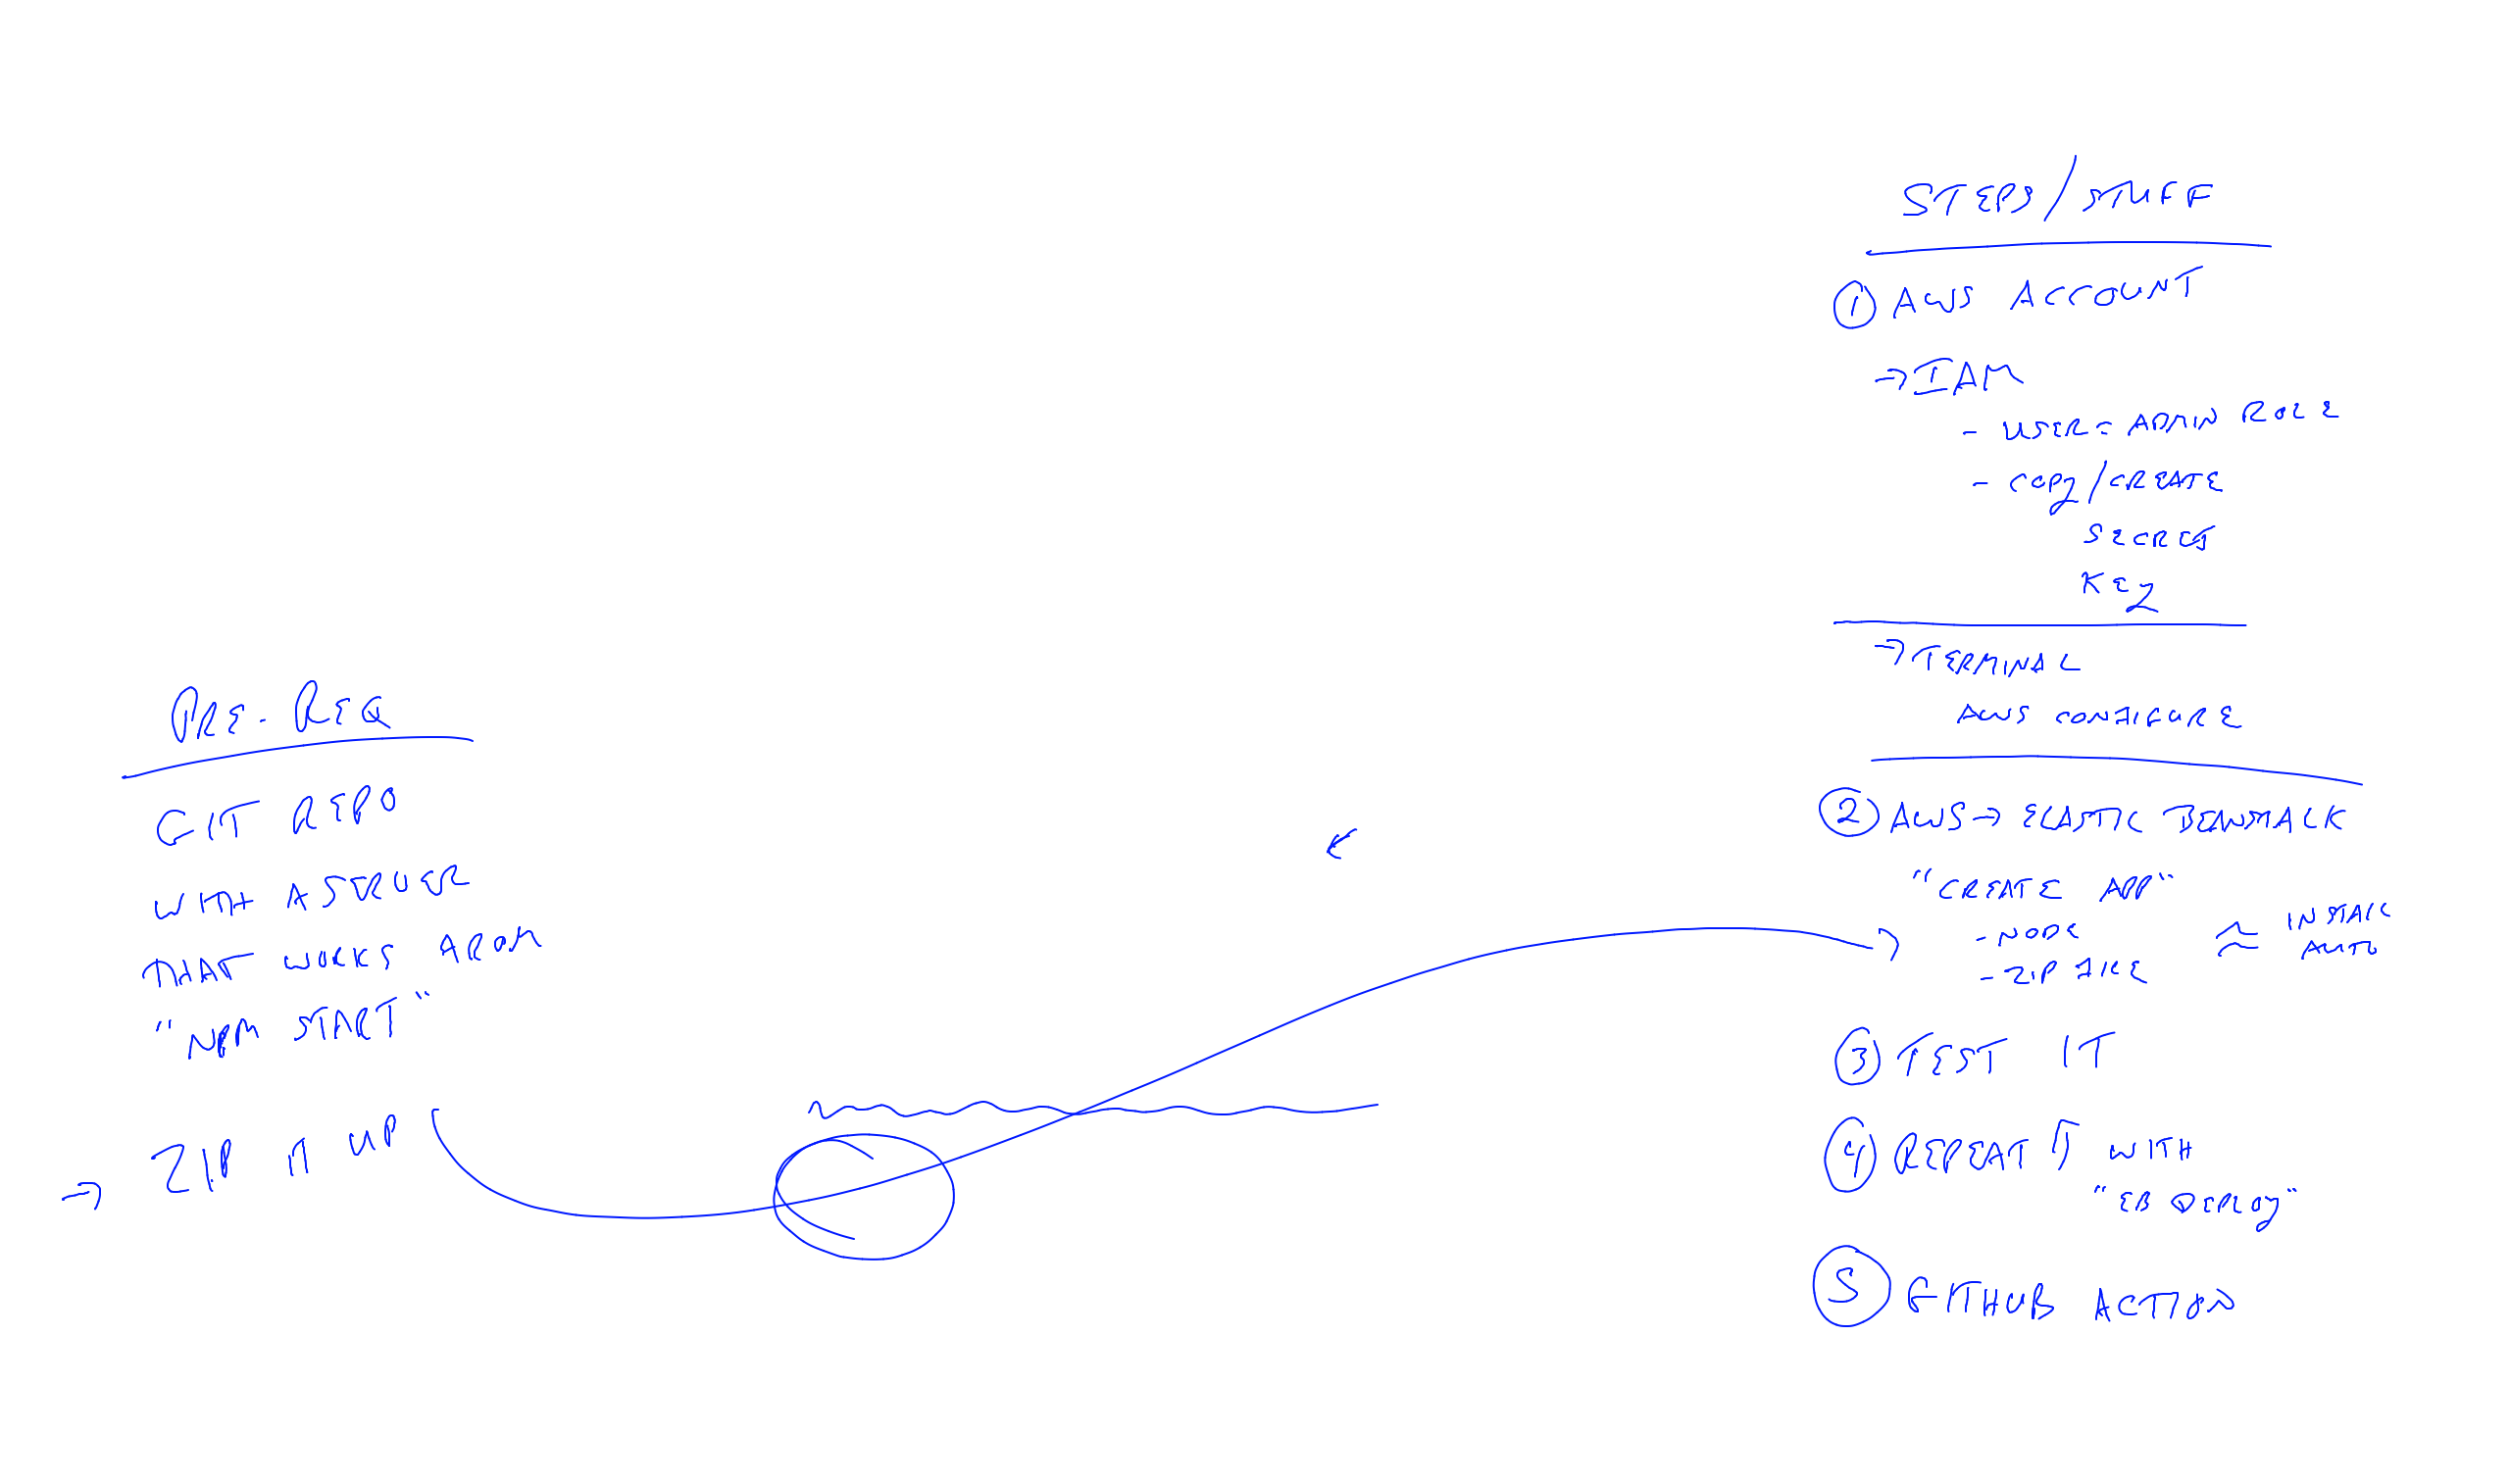 PRE-REQ
GIT REPO
WITH A SERVER
THAT WORKS FROM
"NPM START"
→ ZIP IT UP
STEPS/STUFF
① AWS ACCOUNT
→ IAM
- USER = ADMIN ROLE
- COPY/CREATE
SECRET
KEY
→ TERMINAL
AWS CONFIGURE
② AWS → ELASTIC BEANSTALK
"CREATE APP"
- NODE
- ZIP FILE
≈ INSTALL
AUTO
③ TEST IT
④ REPEAT IT WITH
"EB DEPLOY"
⑤ GITHUB ACTION